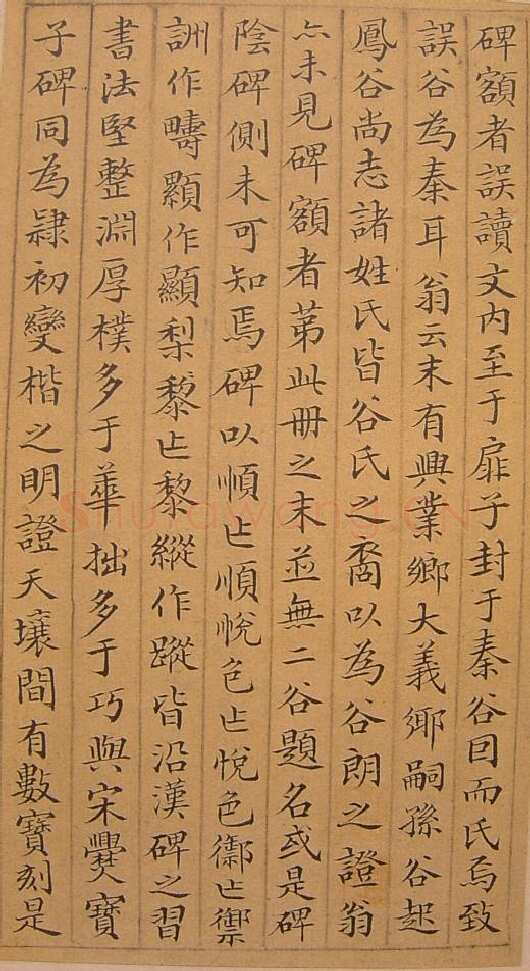 碑額者誤讀文内至于扉子封于秦谷因而氏焉致
誤谷為秦耳翁云末有興業鄉大義鄉嗣孫谷起
鳳谷尚志諸姓氏皆谷氏之裔以為谷朗之證翁
亦未見碑額者苐此冊之末並無二谷題名或是碑
陰碑側未可知焉碑以順㠯順悅色㠯悅色御㠯禦
詶作疇顯作顯梨黎㠯黎縱作蹤皆沿漢碑之習
書法堅整淵厚樸多于華拙多于巧與宋爨寶
子碑同為隸初變楷之明證天壤間有數寶刻是